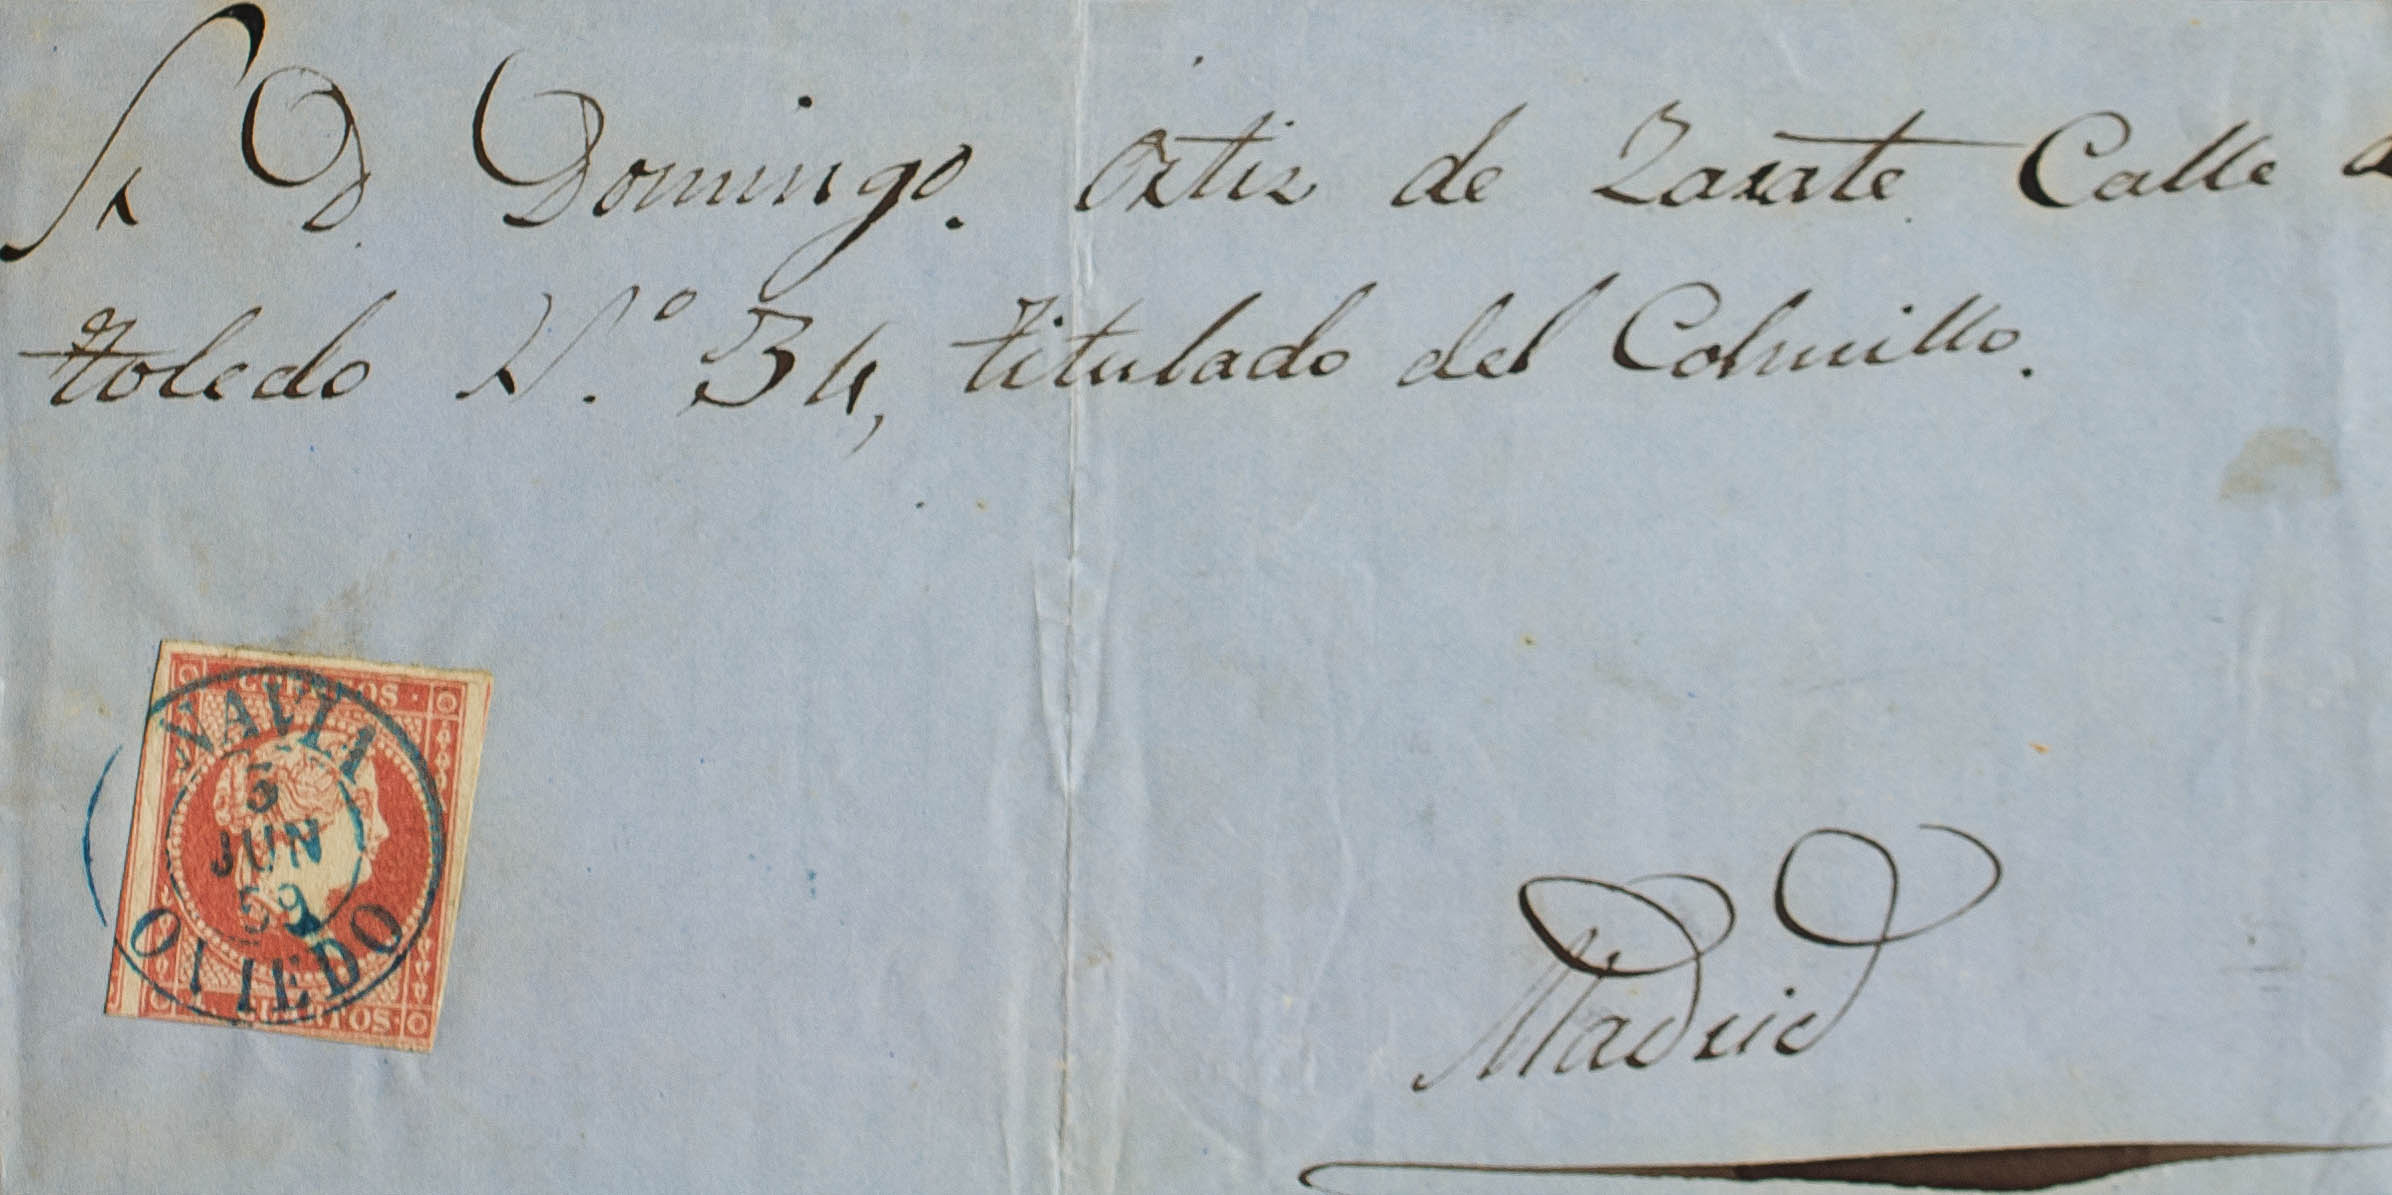 Sr D. Domingo. Ortiz de Zarate Calle d
toledo N.º 34, titulado del Colmillo.
CORREOS
NAVIA
5
JUN
59
OVIEDO
CUARTOS
Madrid